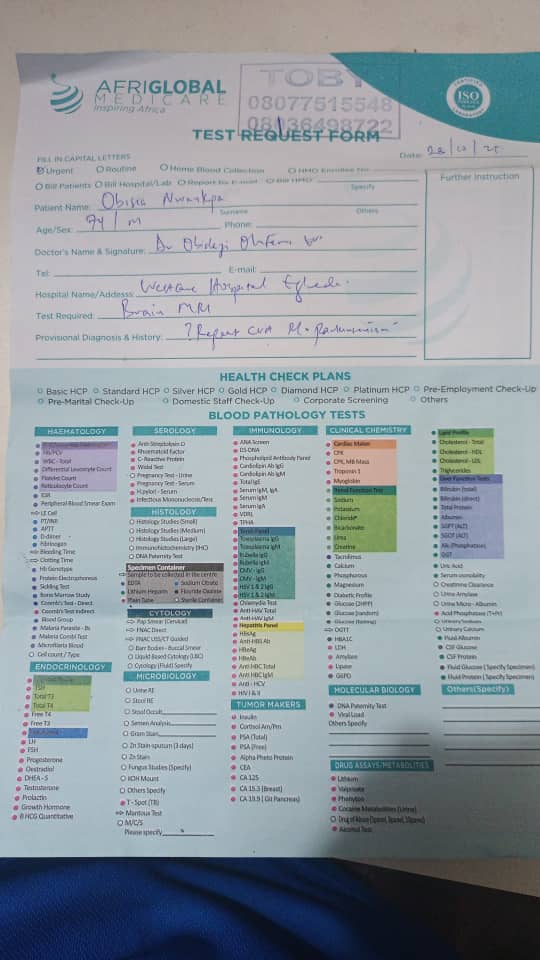 AFRIGLOBAL
MEDICARE
Inspiring Africa
TOBY
08077515548
08036498722
CERTIFIED
ISO
TEST REQUEST FORM
Date: 28/10/25
FILL IN CAPITAL LETTERS
Urgent Routine Home Blood Collection HMO Enrollee No
Bill Patients Bill Hospital/Lab Report by E-mail Bill HMO
Specify
Further Instruction
Patient Name: Obisia Nwankpa
Surname Others
Age/Sex: 74/M Phone:
Doctor's Name & Signature: Dr
Tel: E-mail:
Hospital Name/Address: Hospital Egbeda.
Test Required: Brain MRI
Provisional Diagnosis & History: ? Repeat CVA
HEALTH CHECK PLANS
Basic HCP Standard HCP Silver HCP Gold HCP Diamond HCP Platinum HCP Pre-Employment Check-Up
Pre-Marital Check-Up Domestic Staff Check-Up Corporate Screening Others
BLOOD PATHOLOGY TESTS
HAEMATOLOGY
HB/PCV
WBC - Total
Differential Leucocyte Count
Platelet Count
Reticulocyte Count
ESR
Peripheral Blood Smear Exam
LE Cell
PT/INR
APTT
D-dimer
Fibrinogen
Bleeding Time
Clotting Time
Hb Genotype
Protein Electrophoresis
Sickling Test
Bone Marrow Study
Coomb's Test - Direct
Coomb's Test - Indirect
Blood Group
Malaria Parasite - Bs
Malaria Combi Test
Microfilaria Blood
Cell count / Type
ENDOCRINOLOGY
TSH
Total T3
Total T4
Free T4
Free T3
LH
FSH
Progesterone
Oestradiol
DHEA - S
Testosterone
Prolactin
Growth Hormone
B HCG Quantitative
SEROLOGY
Anti Streptolysin O
Rheumatoid Factor
C- Reactive Protein
Widal Test
Pregnancy Test - Urine
Pregnancy Test - Serum
H.pylori - Serum
Infectious Mononucleosis Test
HISTOLOGY
Histology Studies (Small)
Histology Studies (Medium)
Histology Studies (Large)
Immunohistochemistry (IHC)
DNA Paternity Test
Specimen Container
Sample to be collected in the centre
EDTA Sodium Citrate
Lithium Heparin Fluoride Oxalate
Plain Tube Sterile Container
CYTOLOGY
Pap Smear (Cervical)
FNAC Direct
FNAC USS/CT Guided
Barr Bodies - Buccal Smear
Liquid Based Cytology (LBC)
Cytology (Fluid) Specify
MICROBIOLOGY
Urine RE
Stool RE
Stool Occult
Semen Analysis
Gram Stain
Zn Stain-sputum (3 days)
Zn Stain
Fungus Studies (Specify)
KOH Mount
Others Specify
T - Spot (TB)
Mantoux Test
M/C/S
Please specify
IMMUNOLOGY
ANA Screen
DS-DNA
Phospholipid Antibody Panel
Cardiolipin Ab IgG
Cardiolipin Ab IgM
Total IgE
Serum IgM, IgA
Serum IgM
Serum IgA
VDRL
TPHA
Torch Panel
Toxoplasma IgG
Toxoplasma IgM
Rubella IgG
Rubella IgM
CMV - IgG
CMV - IgM
HSV 1 & 2 IgG
HSV 1 & 2 IgM
Chlamydia Test
Anti-HAV Total
Anti-HAV IgM
Hepatitis Panel
HBsAg
Anti-HBS Ab
HBeAg
HBeAb
Anti HBC Total
Anti HBC IgM
Anti - HCV
HIV I & II
TUMOR MAKERS
Insulin
Cortisol Am/Pm
PSA (Total)
PSA (Free)
Alpha Pheto Protein
CEA
CA 125
CA 15.3 (Breast)
CA 19.9 (GI Pancreas)
CLINICAL CHEMISTRY
Cardiac Maker
CPK
CPK, MB Mass
Troponin 1
Myoglobin
Renal Function Test
Sodium
Potassium
Chloride
Bicarbonate
Urea
Creatine
Tacrolimus
Calcium
Phosphorous
Magnesium
Diabetic Profile
Glucose (2HPP)
Glucose (random)
Glucose (fasting)
OGTT
HBA1C
LDH
Amylase
Lipase
G6PD
MOLECULAR BIOLOGY
DNA Paternity Test
Viral Load
Others Specify
DRUG ASSAYS/METABOLITIES
Lithium
Valproate
Phenyton
Cocaine Metabolities (Urine)
Drug of Abuse
Alcohol Test
Lipid Profile
Cholesterol - Total
Cholesterol - HDL
Cholesterol - LDL
Triglycerides
Liver Function Tests
Bilirubin (total)
Bilirubin (direct)
Total Protein
Albumin
SGPT (ALT)
SGOT (ALT)
Alk (Phosphatase)
GGT
Uric Acid
Serum osmolality
Creatinine Clearance
Urine Amylase
Urine Micro - Albumin
Acid Phosphatase (T+Pr)
Urinary Sodium
Urinary Calcium
Fluid Albumin
CSF Glucose
CSF Protein
Fluid Glucose (Specify Specimen)
Fluid Protein (Specify Specimen)
Others(Specify)